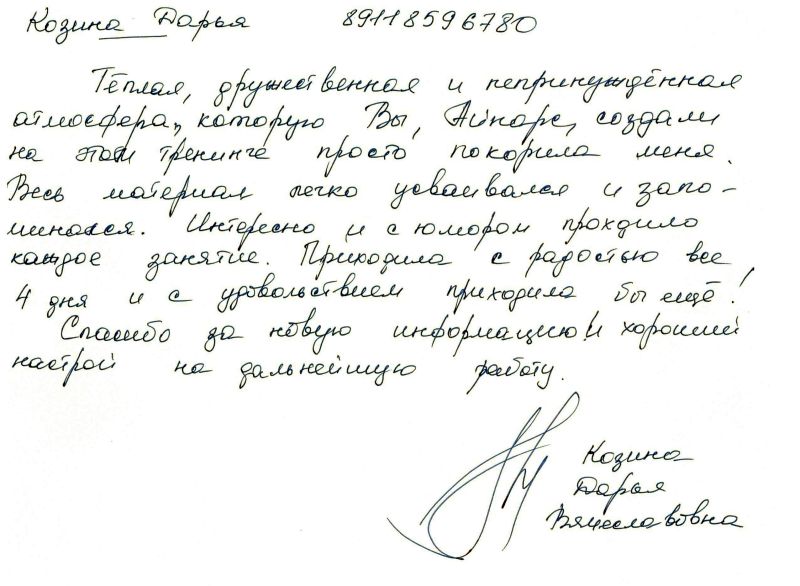 Козина Дарья 89118596780
Тёплая, дружественная и непринуждённая
атмосфера, которую Вы, Айнарс, создали
на этом тренинге просто покорила меня.
Весь материал легко усваивался и запо-
минался. Интересно и с юмором проходило
каждое занятие. Приходила с радостью все
4 дня и с удовольствием приходила бы ещё!
Спасибо за новую информацию и хороший
настрой на дальнейшую работу.
Козина
Дарья
Вячеславовна